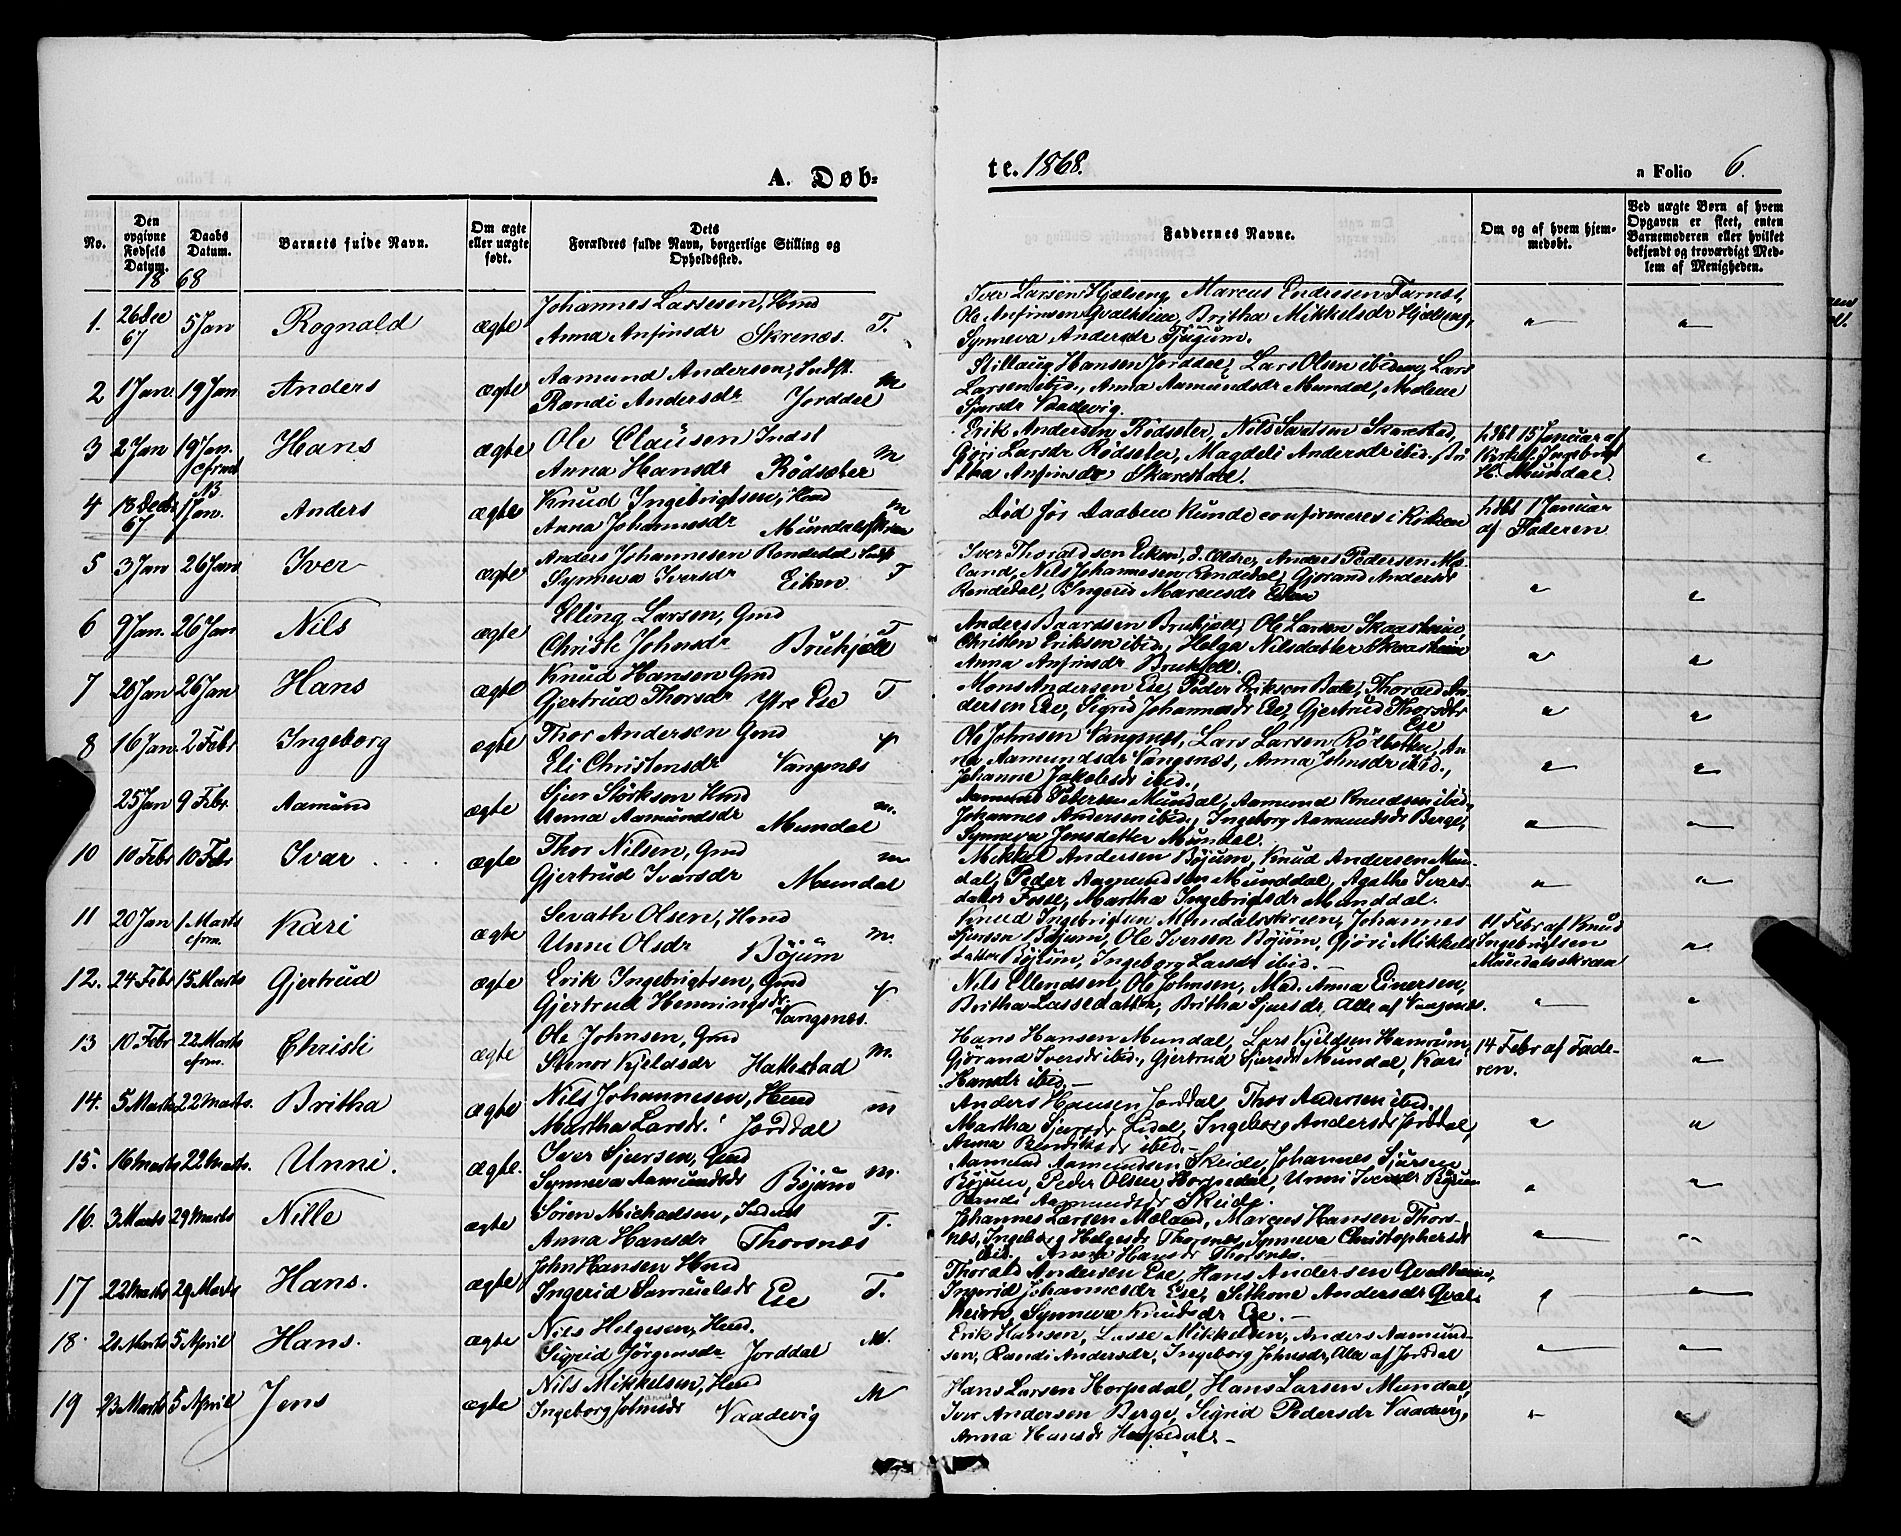 A. Døb-
te. 1868.
a Folio 6.
No.
Den opgivne Fødsels Datum.
Daabs Datum.
Barnets fulde Navn.
Om ægte eller uægte født.
Dets Forældres fulde Navn, borgerlige Stilling og Opholdssted.
Faddernes Navne.
Om og af hvem hjemmedøbt.
Ved uægte Børn af hvem Opgaven er skeet, enten Barnemoderen eller hvilket bekjendt og troværdigt Medlem af Menigheden.
1868
1. 26 Dec 67 5 Jan Rognald ægte Johannes Lassesen, Hmd
Anna Anfinsdr Skrenæs. T.
Iver Larsen Hjelseng, Marcus Endresen Farnes,
Ole Anfinsen Qvalheim, Britha Mikkelsdr Hjelseng,
Synneva Andersdr Tjugum.
2 1 Jan 19 Jan Anders ægte Aamund Andersen, Indst.
Randi Andersdr Jorddal M
Stillaug Hansen Jorddal, Lars Olsen ibidem, Lars
Larsen ibid., Anna Aamundsdr Mundal, Malene
Sjursdr Vaadevig.
3 2 Jan 19 Jan. cfrmt Hans ægte Ole Clausen Indst
Anna Hansdr Rødsæter M
Erik Andersen Rødseter, Nils Sjursen Skarestad,
Gjøri Larsdr Rødseter, Magdeli Andersdr ibid., Bri
tha Anfinsdr Skarestad.
hdbt 15 Januar af
Kirkes. Ingebrigt
H. Mundal.
4 18 Decbr 67 13 Jan. Anders ægte Knud Ingebrigtsen, Hmd
Anna Johannesdr Mundalsskreen M
Død før Daaben kunde confirmeres i Kirken
hdbt 1 Januar
af Faderen
5 3 Jan 26 Jan Iver ægte Anders Johannesen Rendedal Indst
Synneva Iversdr Eiken T
Iver Thoraldsen Eiken, d. Ældre, Anders Pedersen Mæ
land, Nils Johannesen Rendedal, Gjørand Andersdr
Rendedal, Ingerid Marcusdr Eiken
6 9 Jan. 26 Jan Nils ægte Elling Larsen, Gmd
Christi Johnsdr Bruhjell T
Anders Baardsen Bruhjell, Ole Larsen Skaasheim,
Christen Eriksen ibid., Helga Nilsdatter Skaasheim
Anna Anfinsdr Bruhjell.
7 20 Jan 26 Jan Hans ægte Knud Hansen Gmd
Gjertrud Thorsdr Ytre Ese T
Mons Andersen Ese, Peder Eriksen Bale, Thorald An
dersen Ese, Sigrid Johannesdr Ese, Gjertrud Thorsdtr
Ese
8 16 Jan. 2 Febr Ingeborg ægte Thor Andersen Gmd
Eli Christensdr Vangsnes V
Ole Johnsen Vangsnes, Lars Larsen Rølbotten, An
na Aamundsdr Vangsnes, Anna Johnsdr ibid.,
Johanne Jakobsdr ibid.
25 Jan 9 Febr. Aamund ægte Sjur Størksen Hmd
Anna Aamundsdr Mundal M.
Aamund Pedersen Mundal, Aamund Knudsen ibid.,
Johannes Andersen ibid., Ingeborg Aamundsdr Berge,
Synneva Jensdatter Mundal.
10 10 Febr 10 Febr Ivar ægte Thor Nilsen, Gmd
Gjertrud Ivarsdr Mundal M
Mikkel Andersen Bøjum, Knud Andersen Mun
dal, Peder Aamundsen Munddal, Agathe Ivers
datter Fosse, Martha Ingebrigtsdr Munddal.
11 20 Jan 1 Marts cfrm. Kari ægte Sevath Olsen, Hmd
Unni Olsdr Bøjum M.
Knud Ingebrigtsen Mundalsskreen, Johannes
Sjursen Bøjum, Ole Iversen Bøjum, Gjøri Mikkels
datter Bøjum, Ingeborg Larsdr ibid.
11 Febr af Knud
Ingebrigtsen
Mundalsskreen
12. 24 Febr 15 Marts Gjertrud ægte Erik Ingebrigtsen, Gmd
Gjertrud Henningsdr. Vangsnes. V
Nils Ellendsen, Ole Johnsen, Mad. Anna Einersen,
Britha Lassedatter, Britha Sjursdr, Alle af Vangsnes.
13 10 Febr 22 Marts cfrm. Christi ægte Ole Johnsen, Gmd
Stenor Kjeldsdr Hattestad M.
Hans Hansen Mundal, Lars Kjeldsen Hamrum,
Gjørand Iversdr ibid., Gjertrud Sjursdr Mundal, Kari
Hansdr ibid.
14 Febr af Fade-
ren.
14. 5 Marts 22 Marts. Britha ægte Nils Johannesen, Hmd
Martha Larsdr. Jorddal M
Anders Hansen Jorddal, Thor Andersen ibid.,
Martha Sjursdr Lidal, Ingeborg Andersdr Jorddal,
Anna Bendiksdr ibid.
15. 16 Marts 22 Marts. Unni. ægte. Iver Sjursen, Gmd
Synneva Aamundsdr Bøjum M.
Aamund Aamundsen Skeide, Johannes Sjursen
Bøjum, Peder Olsen Horpedal, Unni Iversdr Bøjum
Randi Aamundsdr Skeide.
16. 3 Marts 29 Marts Nille ægte Søren Michaelsen, Inderst
Anna Hansdr Thorsnæs T.
Johannes Larsen Mæland, Marcus Hansen Thors-
næs, Ingeborg Helgesdr Thorsnæs, Synneva Christophersdr
ibid. Anna Hansdr Thorsnæs.
17 22 Marts 29 Marts Hans. ægte John Hansen Hmd
Ingerid Samuelsdr Ese T.
Thorald Andersen Ese, Hans Andersen Qvalheim,
Ingerid Johannesdr Ese, Sithone Andersdr Qval-
heim, Synneva Knudsdr Ese.
18. 21 Marts 5 April Hans. ægte Nils Helgesen, Hmd.
Sigrid Jørgensdr Jorddal M.
Erik Hansen, Lasse Mikkelsen, Anders Aamund-
sen, Randi Andersdr, Ingeborg Johnsdr, Alle af Jorddal
19 23 Marts 5 April Jens ægte Nils Mikkelsen, Hmd
Ingeborg Johnsdr Vaadevig M
Hans Larsen Horpedal, Hans Larsen Mundal,
Iver Andersen Berge, Sigrid Pedersdr Vaadevig,
Anna Hansdr Horpedal.